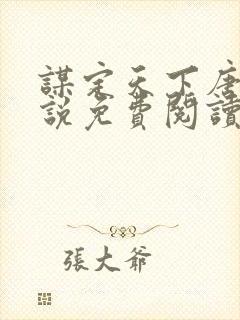 謀定天下唐
說免費閱讀
張大爺